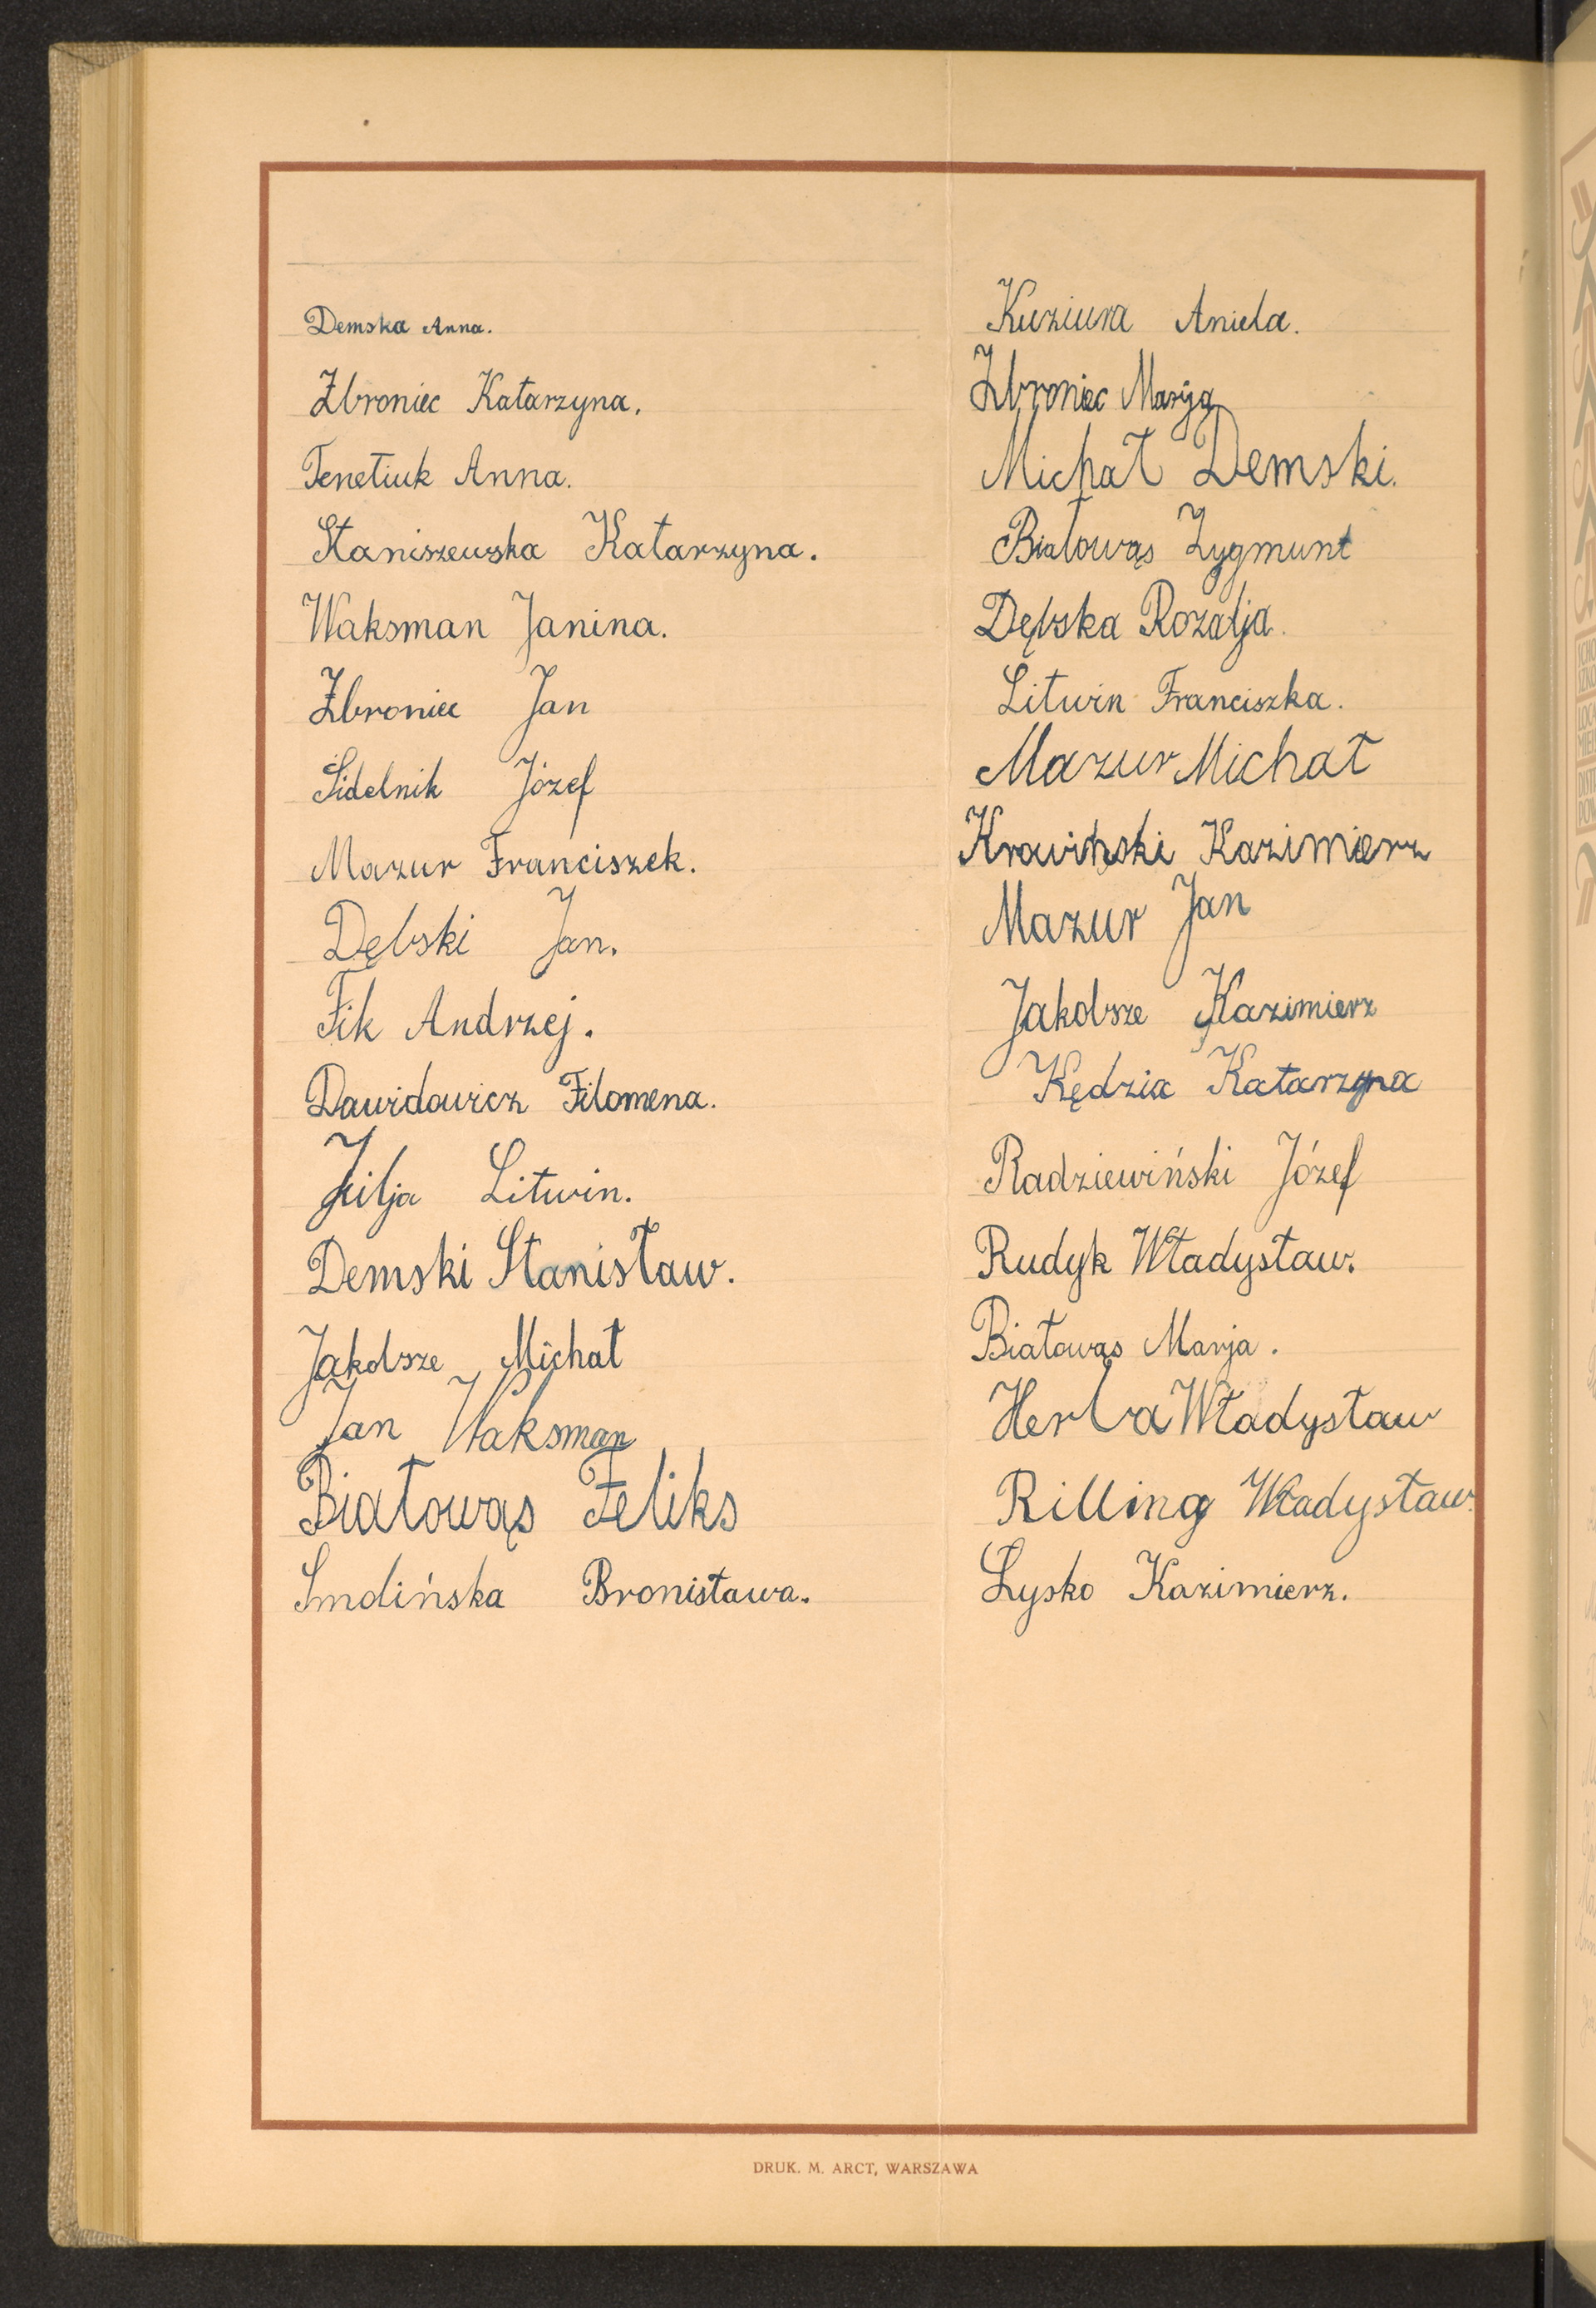 Demska Anna.
Zbroniec Katarzyna.
Tenetiuk Anna.
Staniszewska Katarzyna.
Waksman Janina.
Zbroniec Jan
Sidelnik Józef
Mazur Franciszek.
Dębski Jan.
Fik Andrzej.
Dawidowicz Filomena.
Litwin.
Demski Stanisław.
Jakobsze Michał
Jan Waksman
Białowąs Feliks
Smolińska Bronisława.
Kuziura Aniela.
Zbroniec Marja
Michał Demski.
Białowąs Zygmunt
Dębska Rozalja.
Litwin Franciszka.
Mazur Michał
Krawiński Kazimierz
Mazur Jan
Jakobsze Kazimierz
Kędzia Katarzyna
Radziewiński Józef
Rudyk Władysław.
Białowąs Marja.
Herba Władysław
Rilling Władysław.
Łysko Kazimierz.
DRUK. M. ARCT, WARSZAWA